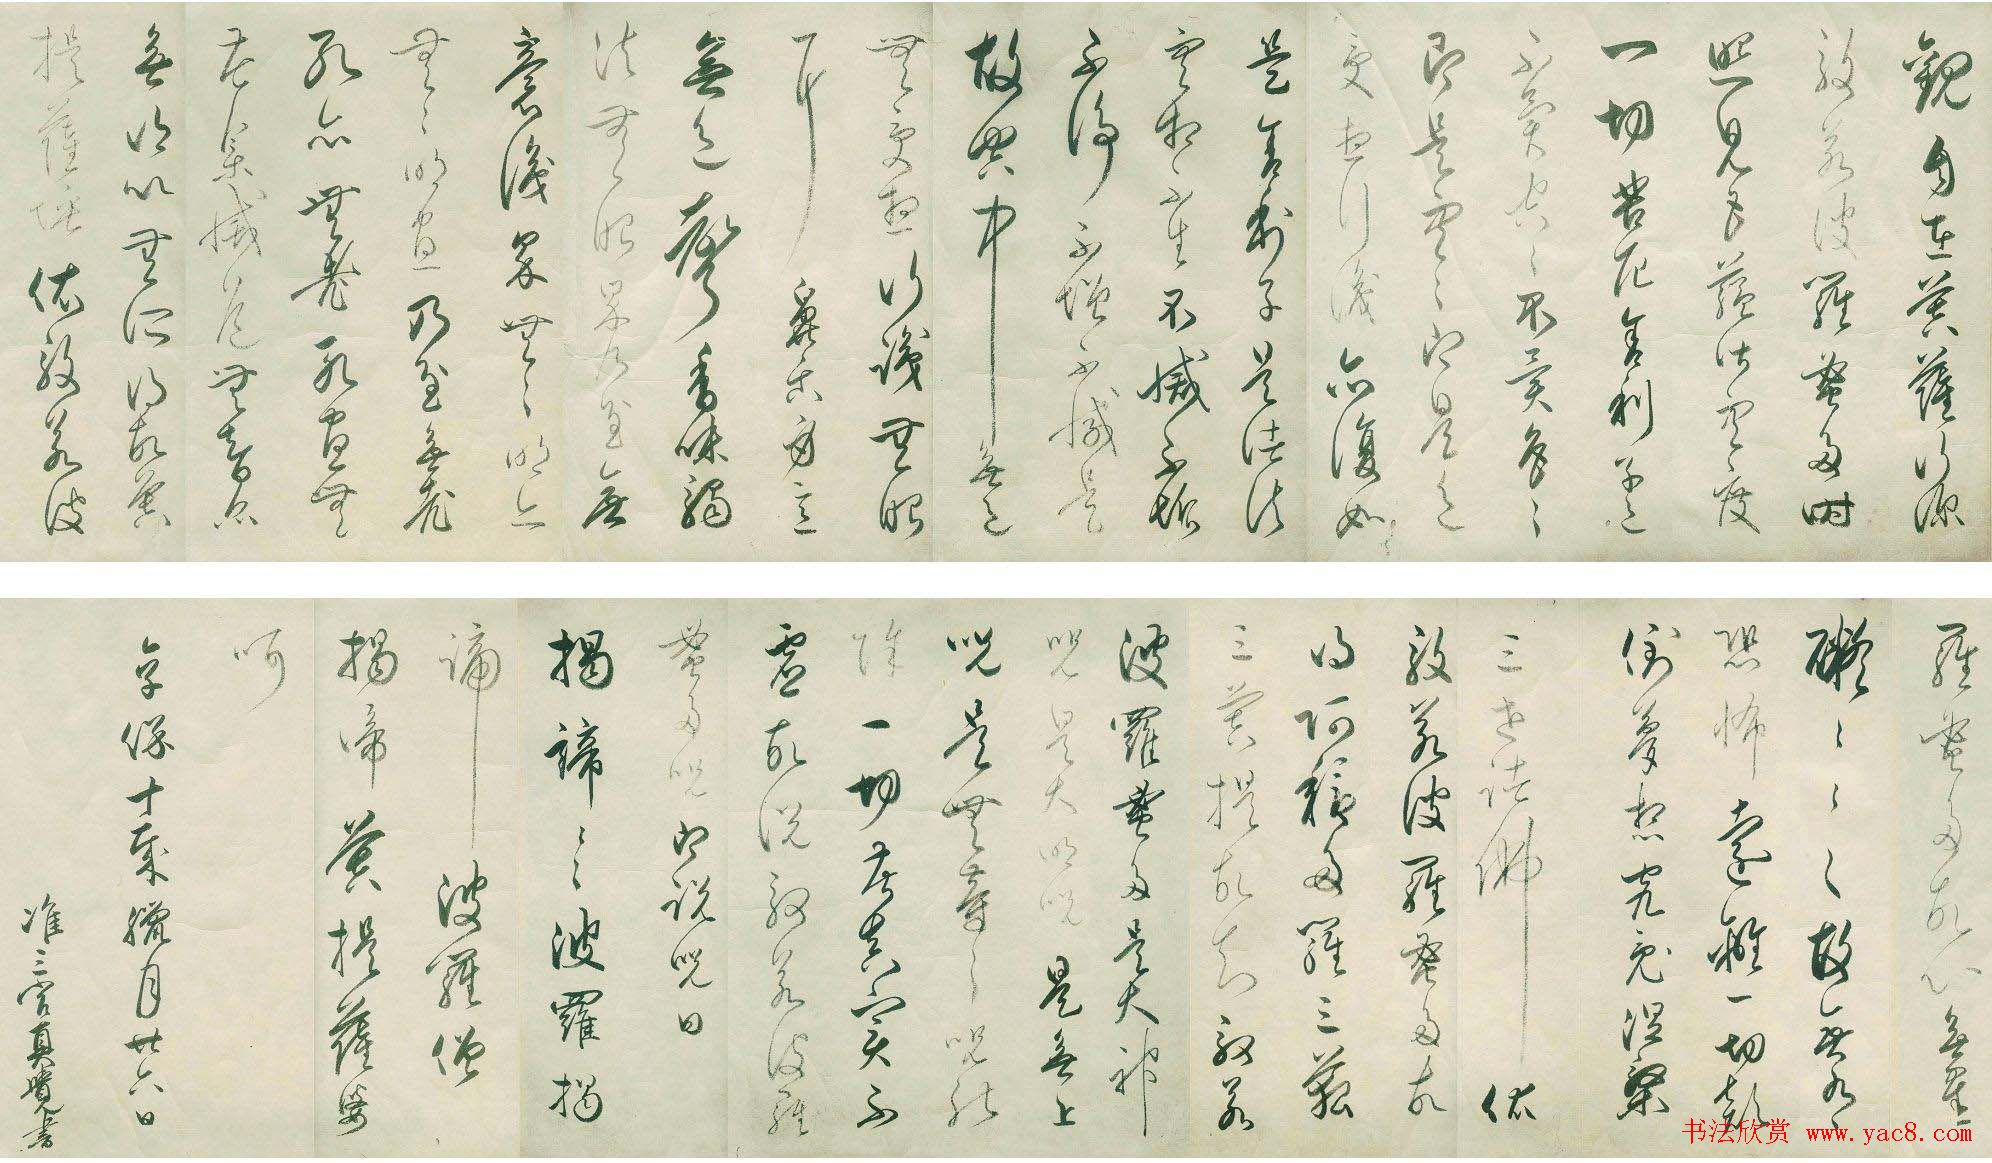 觀自在菩薩行深
般若波羅蜜多時
照見五蘊皆空度
一切苦厄舍利子色
不異空〻不異色〻
即是空〻即是色
受想行識亦復如
是舍利子是諸法
空相不生不滅不垢
不淨不增不減是
故空中無色
無受想行識無眼
耳鼻舌身意
無色聲香味觸
法無眼界乃至無
意識界無〻明亦
無〻明盡乃至無老
死亦無老死盡無
苦集滅道無智亦
無得以無所得故菩
提薩埵依般若波
羅蜜多故心無罣
礙〻〻〻故無有
恐怖遠離一切顛
倒夢想究竟涅槃
三世諸佛依
般若波羅蜜多故
得阿耨多羅三藐
三菩提故知般若
波羅蜜多是大神
呪是大明呪是無上
呪是無等〻呪能
除一切苦真實不
虛故說般若波羅
蜜多呪即說呪曰
揭諦〻〻波羅揭
諦波羅僧
揭諦菩提薩婆
呵
享保十歳臘月廿六日
准三宮真覺書
书法欣赏 www.yac8.com